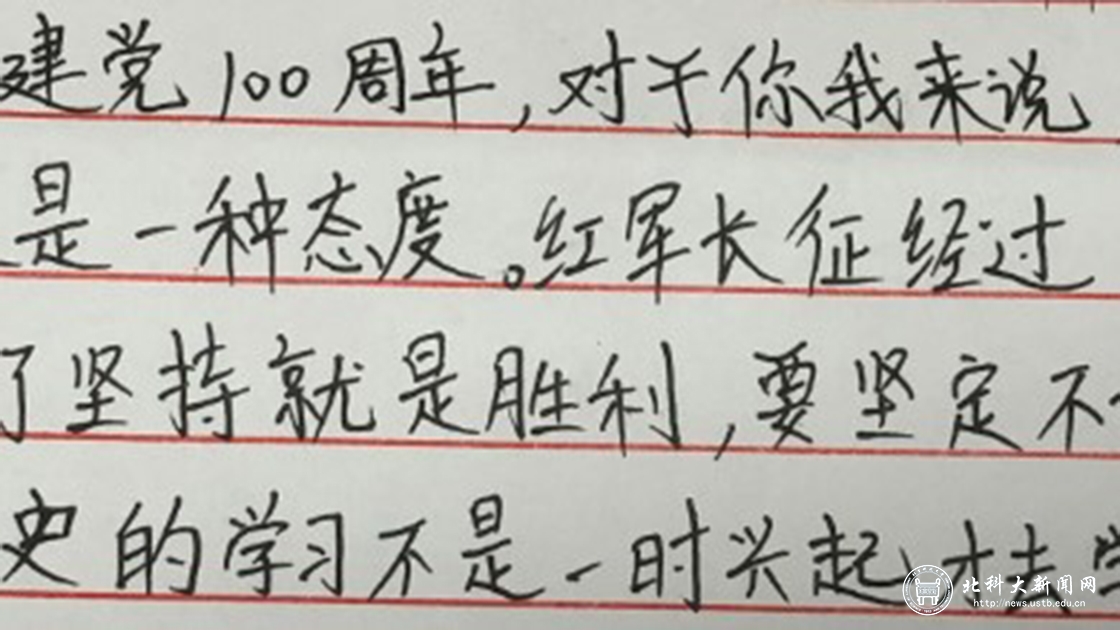 建党100周年,对于你我来说
是一种态度。红军长征经过
了坚持就是胜利,要坚定不
史的学习不是一时兴起,才去
北科大新闻网
http://news.ustb.edu.cn